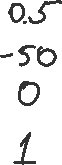 0.5
-50
0
1